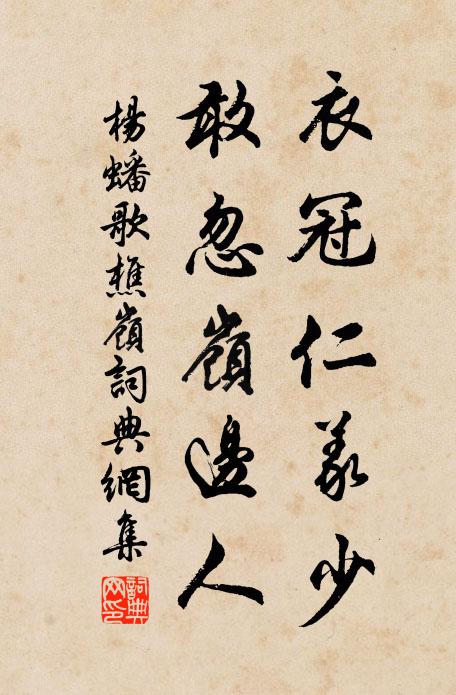 衣冠仁義少
敢忽嶺邊人
楊蟠歌樵嶺詞典網集
詞典网印